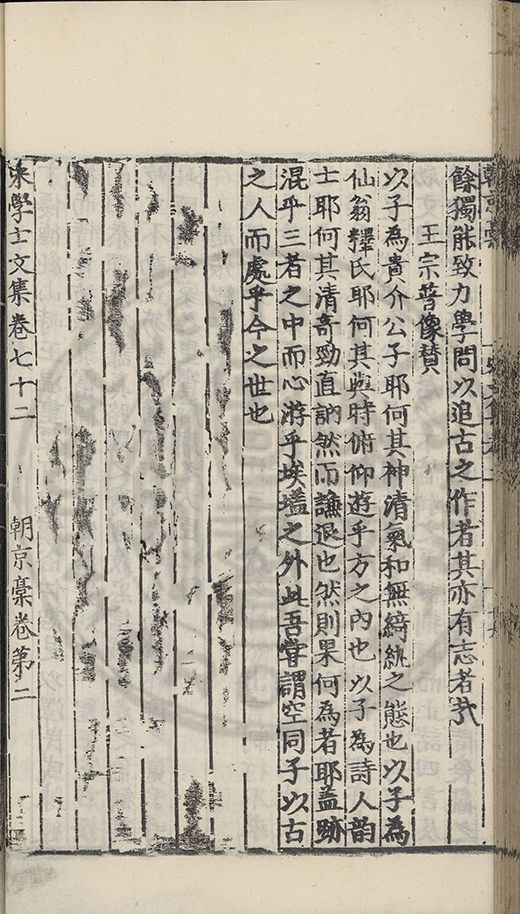 餘獨能致力學問以追古之作者其亦有志者㢤
王宗普像賛
以子為貴介公子耶何其神清氣和無綺紈之態也以子為
仙翁釋氏耶何其與時俯仰遊乎方之内也以子為詩人韻
士耶何其清奇勁直訥然而謙退也然則果何為者耶盖跡
混乎三者之中而心游乎埃壒之外此吾嘗謂空同子以古
之人而處乎今之世也
宋學士文集卷七十二 朝京稾卷第二